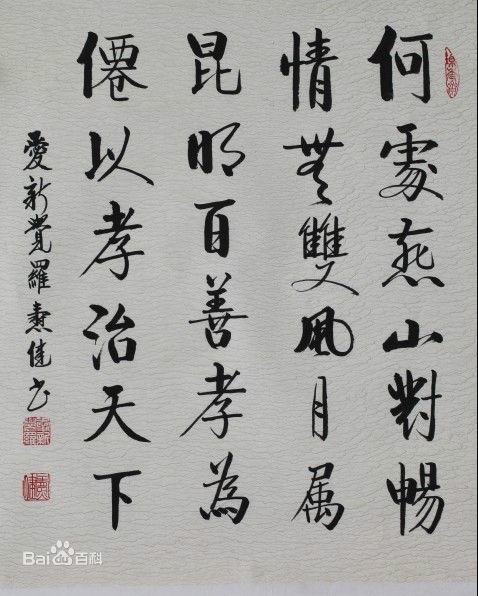 何處燕山對暢
情無雙風月属
昆明百善孝為
僊以孝治天下
愛新覺羅燾佳书
Bai 百科